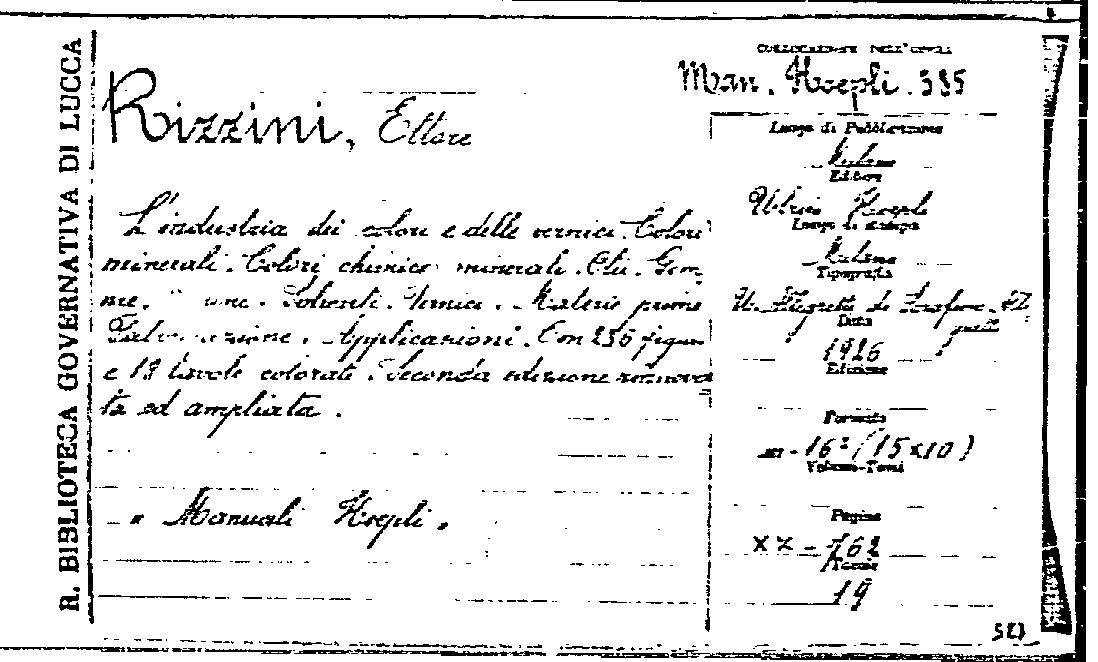 R. BIBLIOTECA GOVERNATIVA DI LUCCA
COLLOCAZIONE DELL'OPERA
Man. Hoepli. 335
Rizzini, Ettore
Luogo di Pubblicazione
Milano
Editore
Ulrico Hoepli
Luogo di stampa
Milano
Tipografia
Data
1926
Edizione
Formato
in-16° (15x10)
Volume-Tomi
Pagine
XX - 762
Tavole
19
L'industria dei colori e delle vernici. Colori
minerali. Colori chimico minerali. Olii. Gom
me. Solventi. Vernici. Materie prime
Applicazioni. Con 256 figure
e 19 tavole colorate. Seconda edizione rinnova
ta ed ampliata.
"Manuali Hoepli"